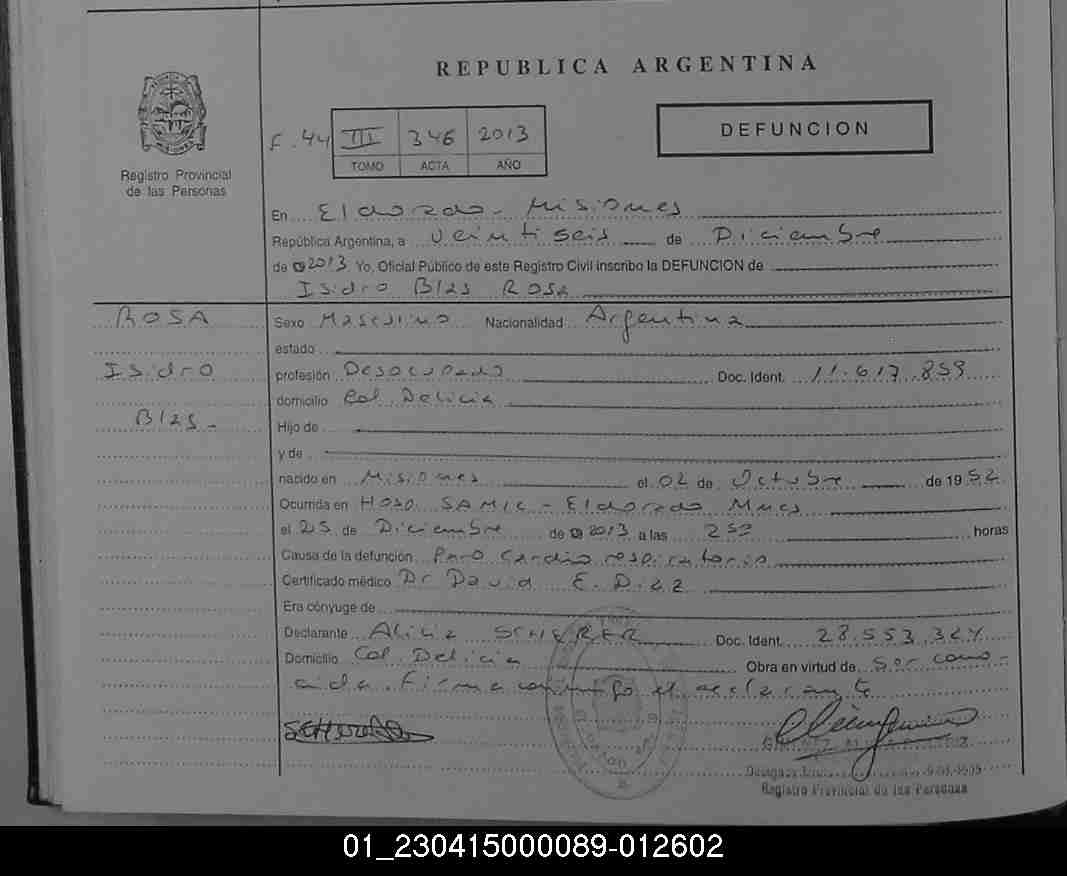 REPUBLICA ARGENTINA
F. 44 III 346 2013
TOMO ACTA AÑO
DEFUNCION
Registro Provincial
de las Personas
En Eldorado - Misiones
República Argentina, a veintiseis de Diciembre
de 2013 Yo, Oficial Público de este Registro Civil inscribo la DEFUNCION de
Isidro Blas ROSA
ROSA
Isidro
Blas -
Sexo Masculino Nacionalidad Argentina
estado
profesión Desocupado Doc. Ident. 11.617.859
domicilio Col. Delicia
Hijo de
y de
nacido en Misiones el 02 de Octubre de 1952
Ocurrida en Hosp SAMIC - Eldorado Mnes
el 25 de Diciembre de 2013 a las horas
Causa de la defunción Paro Cardio respiratorio
Certificado médico Dr David E. Diaz
Era cónyuge de
Declarante Alicia SCHERER Doc. Ident. 28.553.324
Domicilio Col Delicia Obra en virtud de Ser cono-
cida. Firma conmigo el declarante
Registro Provincial de las Personas
01_230415000089-012602